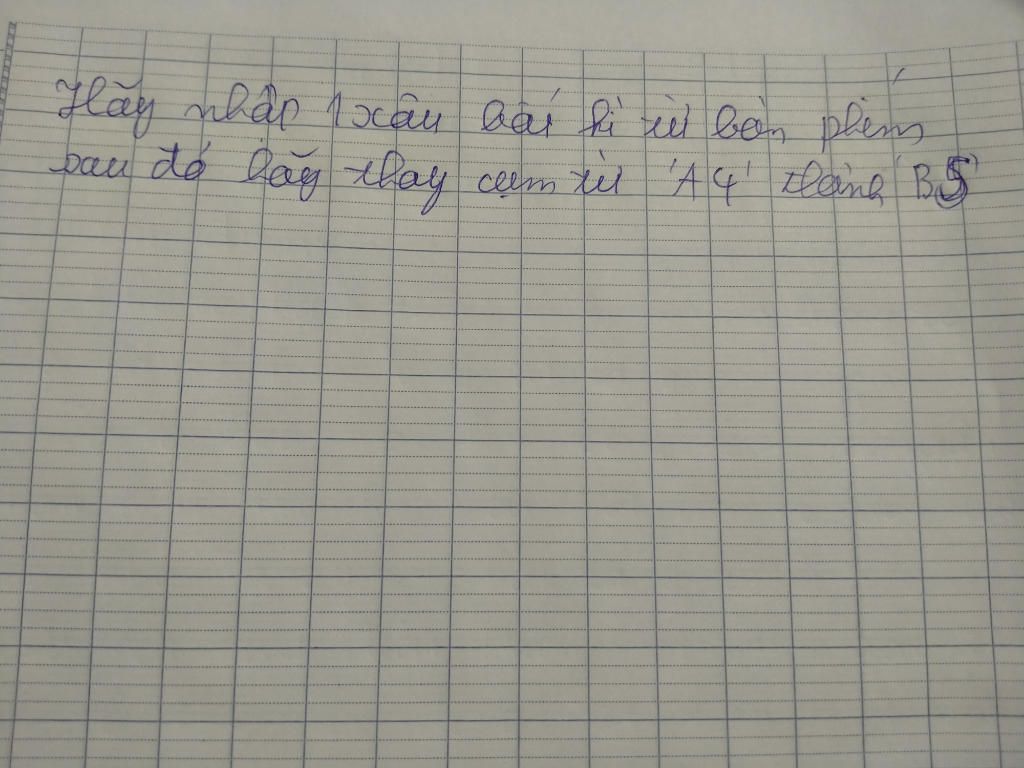 Hãy nhập 1 xâu bất kì từ bàn phím
sau đó hãy thay cụm từ 'A4' thành 'B5'